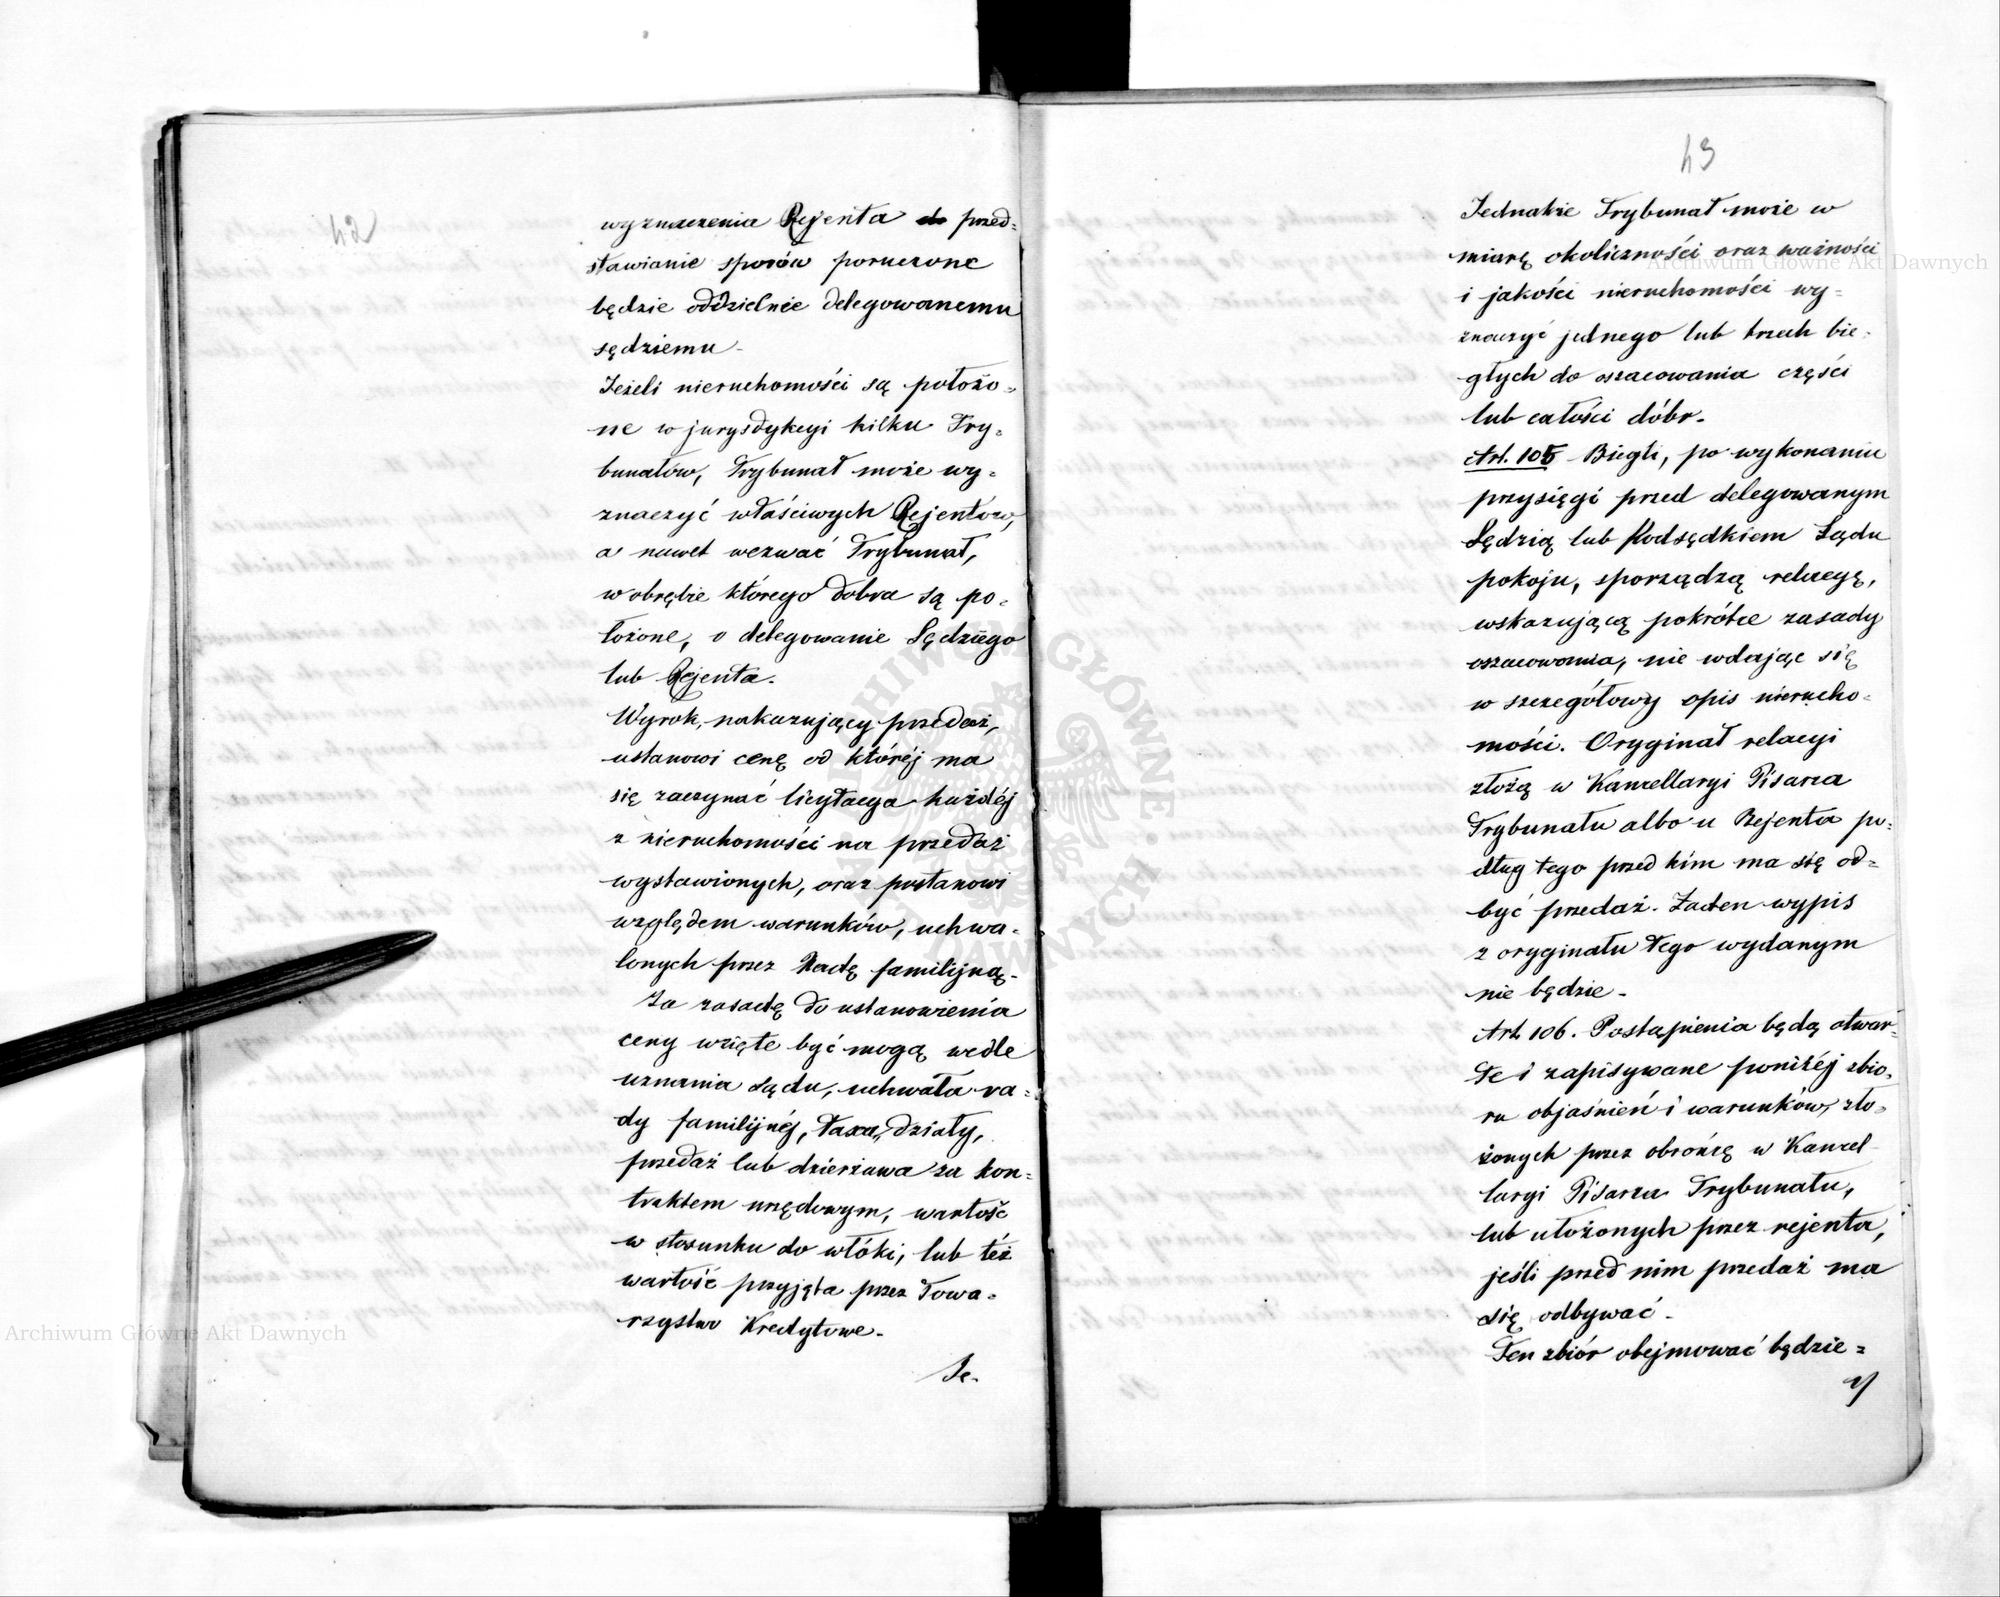 42
wyznaczenia Rejenta do przed=
stawianie sporów poruczone
będzie oddzielnie delegowanemu
sędziemu -
Jeżeli nieruchomości są położo=
ne w jurysdykcyi kilku Try=
bunałów, Trybunał może wy=
znaczyć właściwych Rejentów,
a nawet wezwać Trybunał,
w obrębie którego dobra są po=
łożone, o delegowanie Sędziego
lub Rejenta.
Wyrok, nakazujący przedaż,
ustanowi cenę od któréj ma
się zaczynać licytacya każdéj
z nieruchomości na przedaż
wystawionych, oraz postanowi
względem warunków, uchwa=
lonych przez Radę familijną.
Za zasadę do ustanowienia
ceny wzięte być mogą wedle
uznania sądu, uchwała ra=
dy familijnéj, taxa, działy,
przedaż lub dzierżawa za kon=
traktem urzędowym, wartość
w stosunku do włóki, lub też
wartość przyjęta przez Towa=
rzystwo Kredytowe.
Je-
43
Jednakże Trybunał może w
miarę okoliczności oraz ważności
i jakości nieruchomości wy=
znaczyć jednego lub trzech bie=
głych do oszacowania części
lub całości dóbr.
Art. 105 Biegli, po wykonaniu
przysięgi przed delegowanym
Sędzią lub Podsędkiem Sądu
pokoju, sporządzą relacyę,
wskazującą pokrótce zasady
oszacowania, nie wdając się
w szczegółowy opis nierucho=
mości. Oryginał relacyi
złożą w Kancellaryi Pisarza
Trybunału albo u Rejenta po=
dług tego przed kim ma się od=
być przedaż. Żaden wypis
z oryginału tego wydanym
nie będzie -
Art. 106. Postąpienia będą otwar=
te i zapisywane poniżéj zbio=
ru objaśnień i warunków, zło=
żonych przez obrońcę w Kancel-
laryi Pisarza Trybunału,
lub ułożonych przez rejenta,
jeśli przed nim przedaż ma
się odbywać -
Ten zbiór obejmować będzie =
1/
Archiwum Główne Akt Dawnych
Archiwum Główne Akt Dawnych
ARCHIWUM GŁÓWNE AKT DAWNYCH